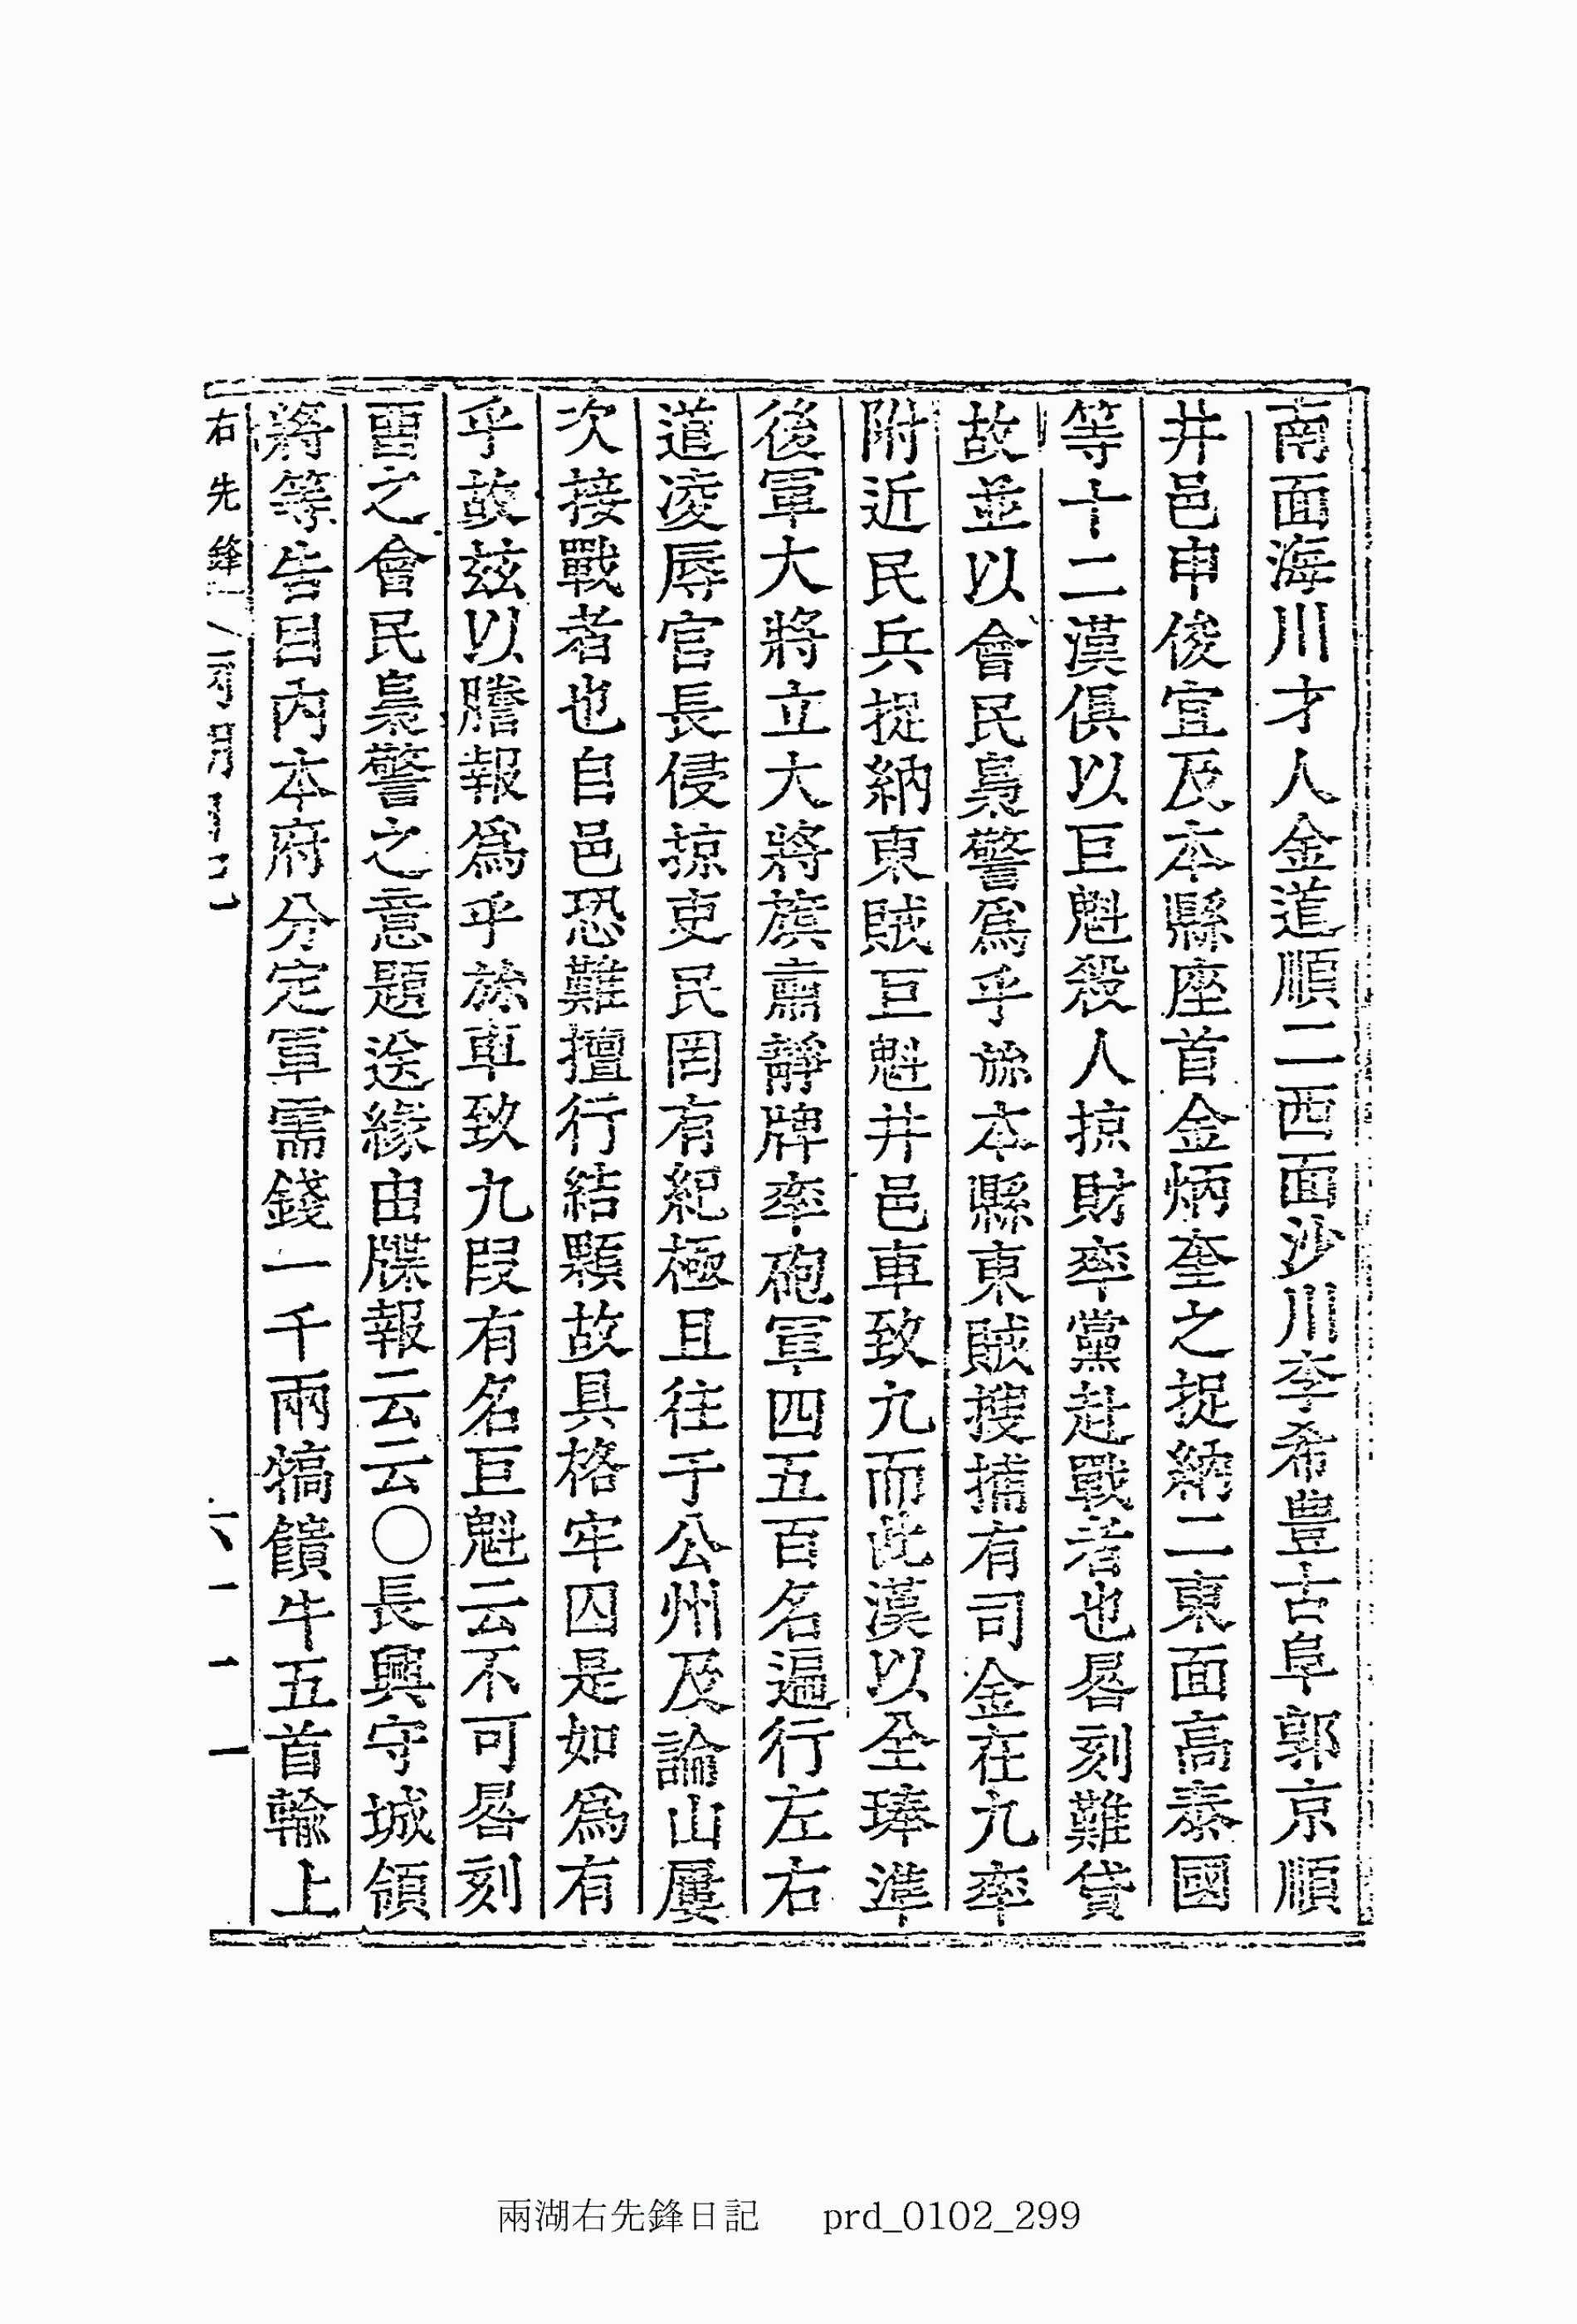 南面海川才人金道順二西面沙川李希豊古阜郭京順
井邑申俊宜及本縣座首金炳奎之捉納二東面高泰國
等十二漢俱以巨魁殺人掠財率黨赴戰者也晷刻難貸
故並以會民梟警爲乎旀本縣東賊搜捕有司金在九率
附近民兵捉納東賊巨魁井邑車致九而此漢以全琫準
後軍大將立大將旗肅靜牌率砲軍四五百名遍行左右
道凌辱官長侵掠吏民罔有紀極且往于公州及論山屢
次接戰者也自邑恐難擅行結顆故具格牢囚是如爲有
乎故玆以謄報爲乎旀車致九段有名巨魁云不可晷刻
㽕之會民梟警之意題送緣由牒報云云〇長興守城領
將等告目內本府分定軍需錢一千兩犒饋牛五首輸上
右先鋒
六一一一
兩湖右先鋒日記 prd_0102_299